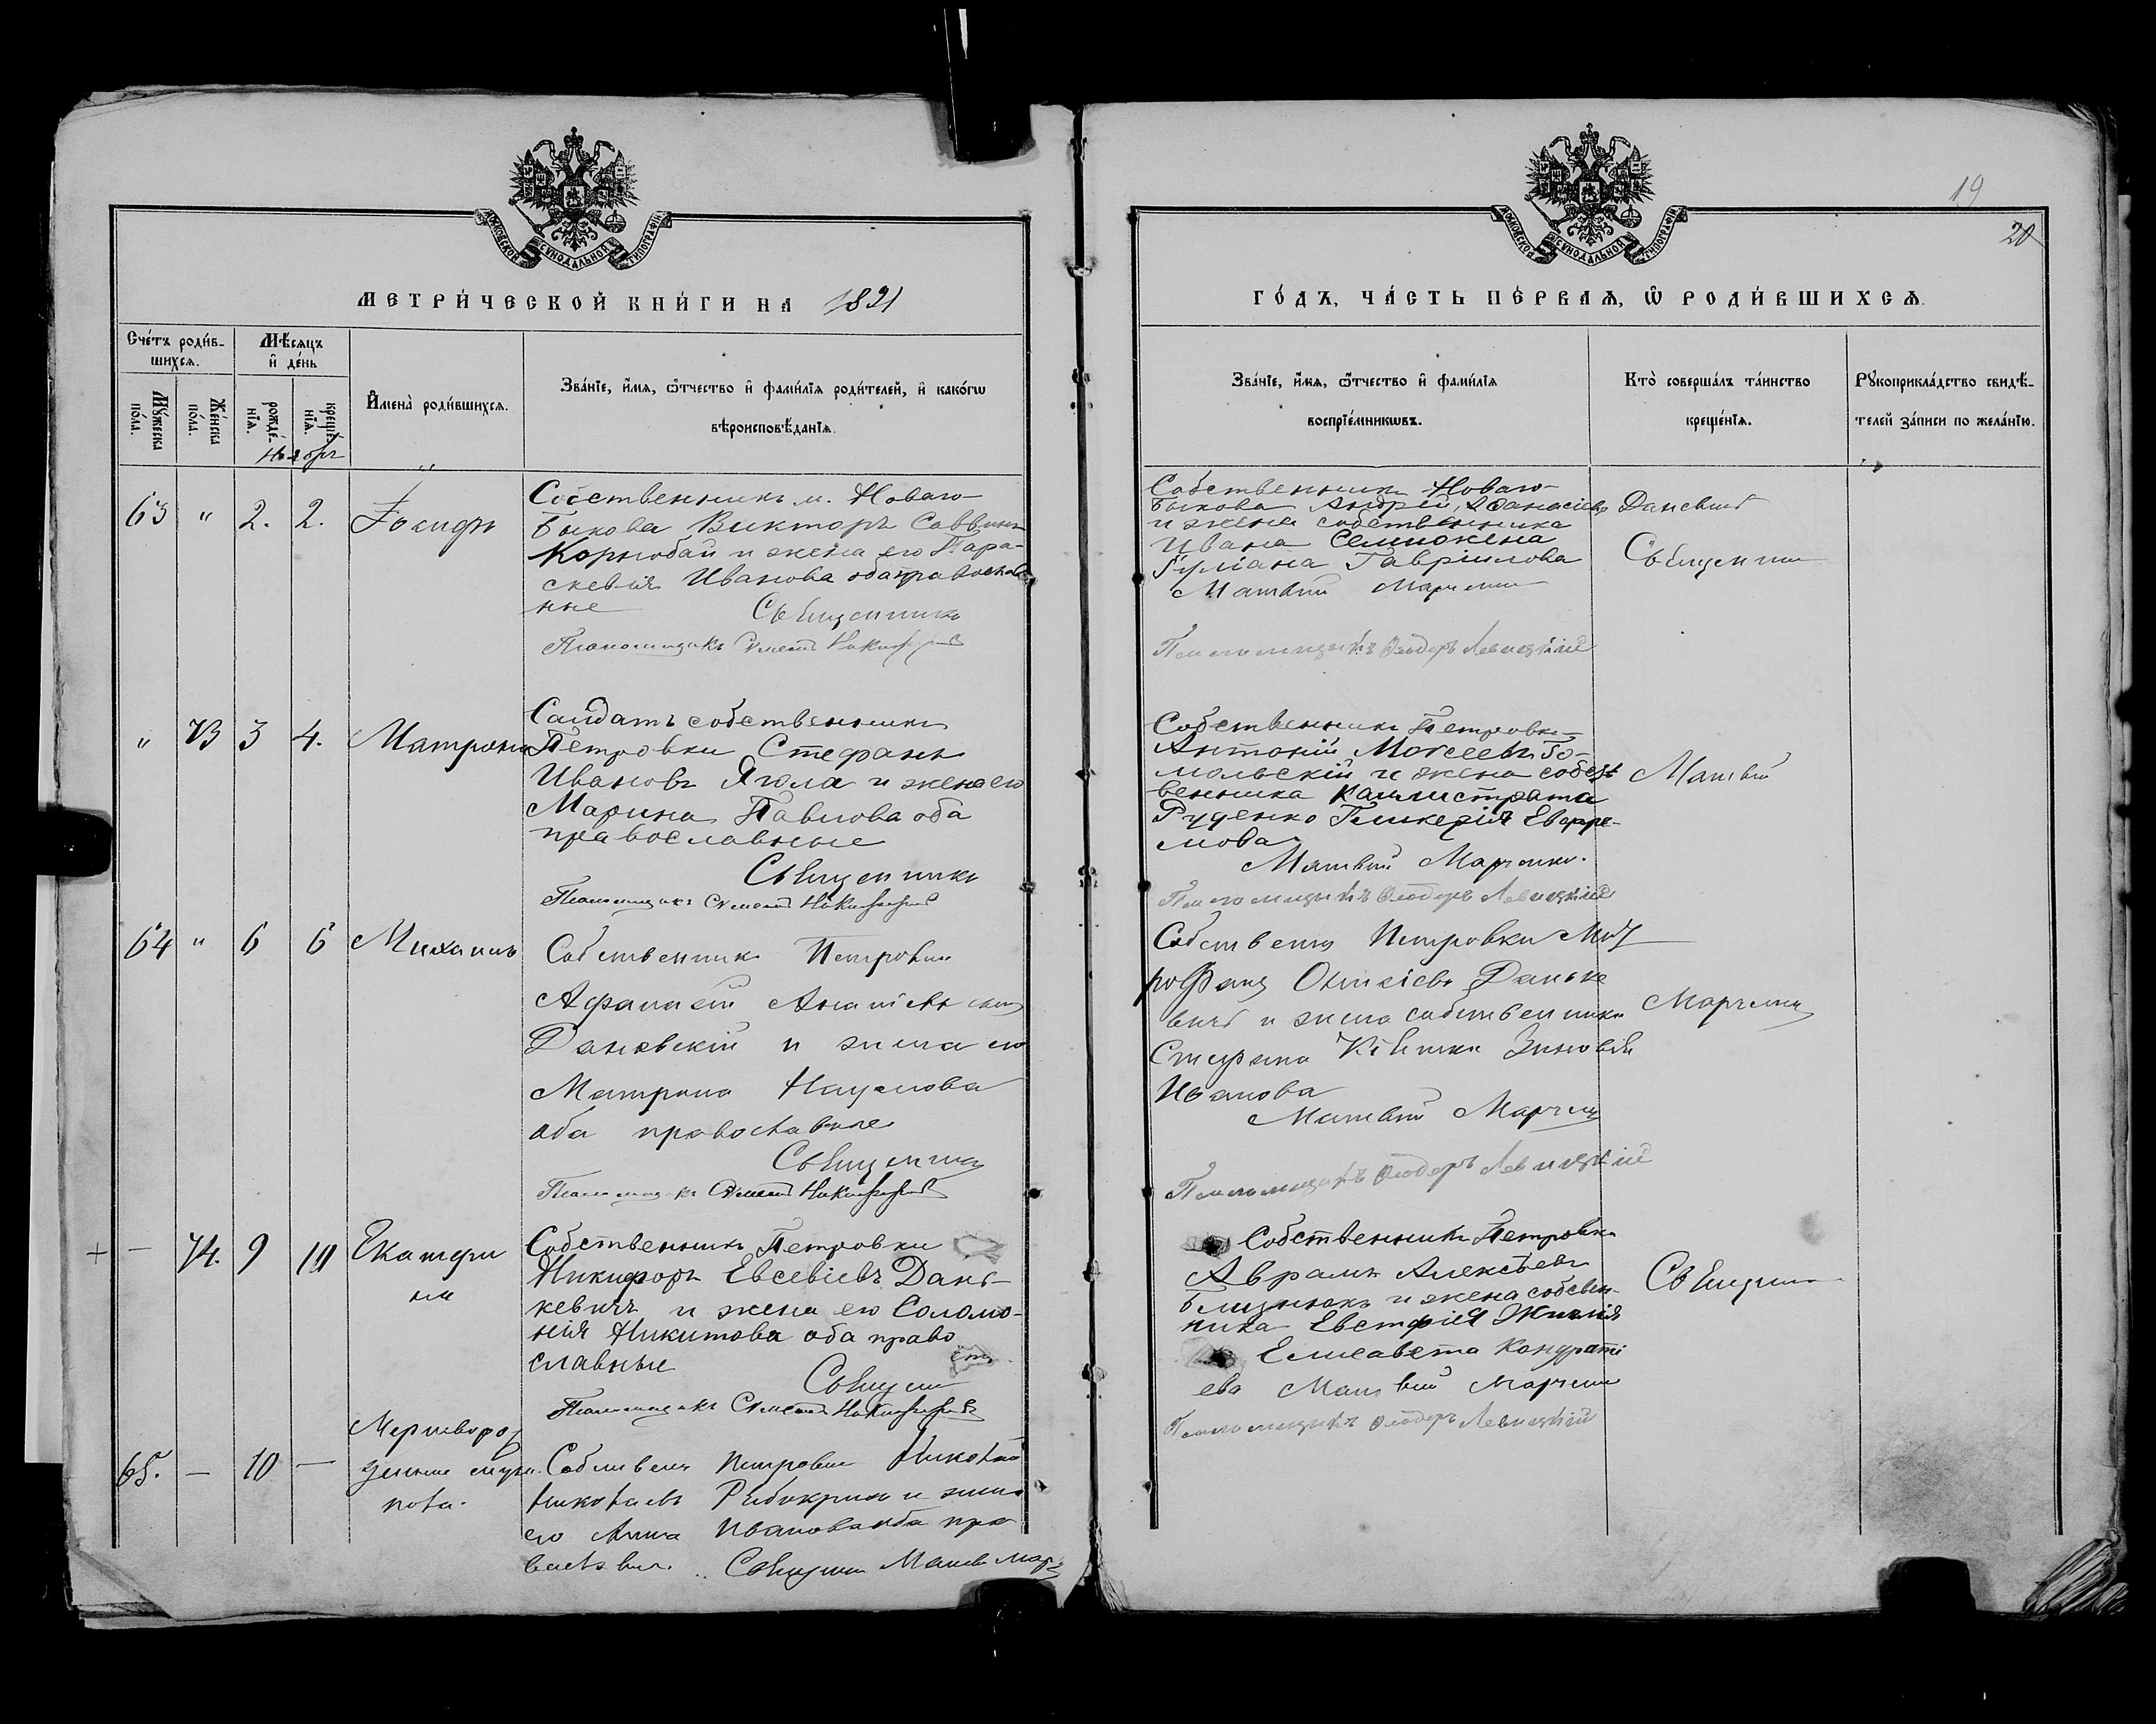 МОСКОВСКОЙ СѴНОДАЛЬНОЙ ТИПОГРАФІИ
МЕТРИ́ЧЕСКОЙ КНИ́ГИ НА 1891
Сче́тъ роди́в-
шихсѧ.
Мѣ́сѧцъ
и҆ де́нь
Мꙋ́жеска
по́ла.
Же́нска
по́ла.
рожде́-
нїѧ.
креще́-
нїѧ.
И҆мена̀ роди́вшихсѧ.
Зва́нїе, и҆́мѧ, ѻ҆́тчество и҆ фами́лїѧ роди́телей, и҆ како́гѡ
вѣроисповѣ́данїѧ.
Ноябрь
63 " 2. 2. Іосифъ
Собственникъ м. Новаго
Быкова Викторъ Саввинъ
Корнобай и жена его Пара-
скевія Ивановa оба православ
ные
Священникъ
Псаломщикъ Симеонъ Никифоровъ
" 73 3 4. Матрона
Солдатъ собственникъ
Петровки Стефанъ
Ивановъ Ягола и жена его
Марина Павлова оба
православные
Священникъ
Псаломщикъ Симеонъ Никифоровъ
64 " 6 6 Михаилъ
Собственникъ Петровки
Афанасій Ананіевъ
Дановскій и жена его
Матрона Наумова
оба православные
Священникъ
Псаломщикъ Симеонъ Никифоровъ
+ — 74. 9 10 Екатери
на
Собственникъ Петровки
Никифоръ Евсевіевъ Дань-
кевичъ и жена его Соломо-
нія Никитова оба право
славные
Священ
Псаломщикъ Симеонъ Никифоровъ
65. — 10 —
Мертворож
денный муж.
пола.
Собствен Петровки Николай
Николаевъ и жена
его Анна Иванова оба пра
вославн. Священ Матвѣй Марч
19
20
МОСКОВСКОЙ СѴНОДАЛЬНОЙ ТИПОГРАФІИ
ГО́ДЪ, ЧА́СТЬ ПЕ́РВАѦ, Ѡ҆ РОДИ́ВШИХСѦ.
Зва́нїе, и҆́мѧ, ѻ҆́тчество и҆ фами́лїѧ
воспрїе́мникѡвъ.
Кто̀ соверша́лъ та́инство
креще́нїѧ.
Рꙋкоприкла́дство свидѣ́-
телей за́писи по жела́нїю.
Собственникъ Новаго
Быкова Андрей Аѳанасіевъ
Даневичъ
и жена собственника
Ивана Семиокена
Іуліана Гавріилова
Матвѣй Марченко
Священник
Псаломщикъ Ѳеодоръ Левицкій
Собственникъ Петровки
Антоній Моѵсеевъ Го-
мольскій и жена собст
венника Каллистрата
Руденко Гликерія Евфре-
мова
Матвѣй Марченко.
Матвѣй
Псаломщикъ Ѳеодоръ Левицкій
Собствен Петровки Мит
рофанъ Даньке
вичъ и жена собственника
Стефана Зиновія
Иванова
Матвѣй Марчен
Марченко
Псаломщикъ Ѳеодоръ Левицкій
Собственникъ Петровки
Аврамъ Алексѣевъ
Близнюкъ и жена собствен-
ника Евстафія
Елисавета Кондрати
ева Матвѣй Марчен
Священ
Псаломщикъ Ѳеодоръ Левицкій